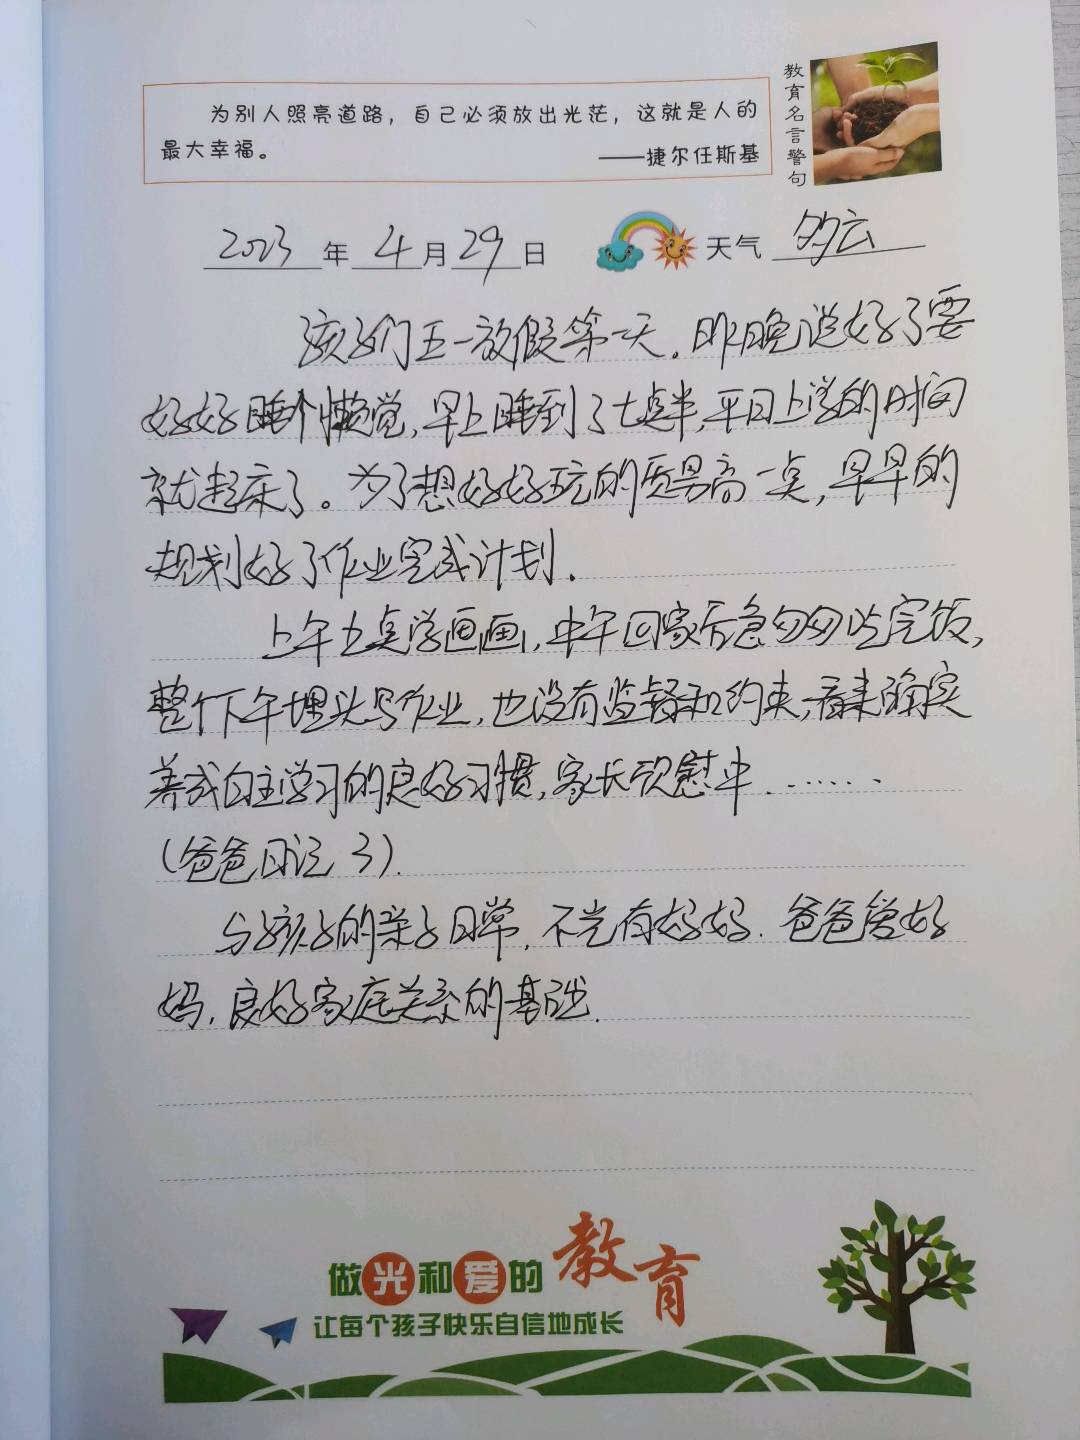 为别人照亮道路，自己必须放出光茫，这就是人的
最大幸福。
——捷尔任斯基
教育名言警句
2023年4月29日 天气 多云
孩子们五一放假第一天。昨晚说好了要
好好睡个懒觉,早上睡到了七点半,平日上学的时间
就起床了。为了想好好玩的质量高一点,早早的
规划好了作业完成计划.
上午九点学画画,中午回家后急匆匆吃完饭,
整个下午埋头写作业,也没有监督和约束,看来确实
养成自主学习的良好习惯,家长欣慰中.......
(爸爸日记 3).
与孩子的亲子日常,不光有好妈.爸爸曾好
妈,良好家庭关系的基础.
做光和爱的教育
让每个孩子快乐自信地成长